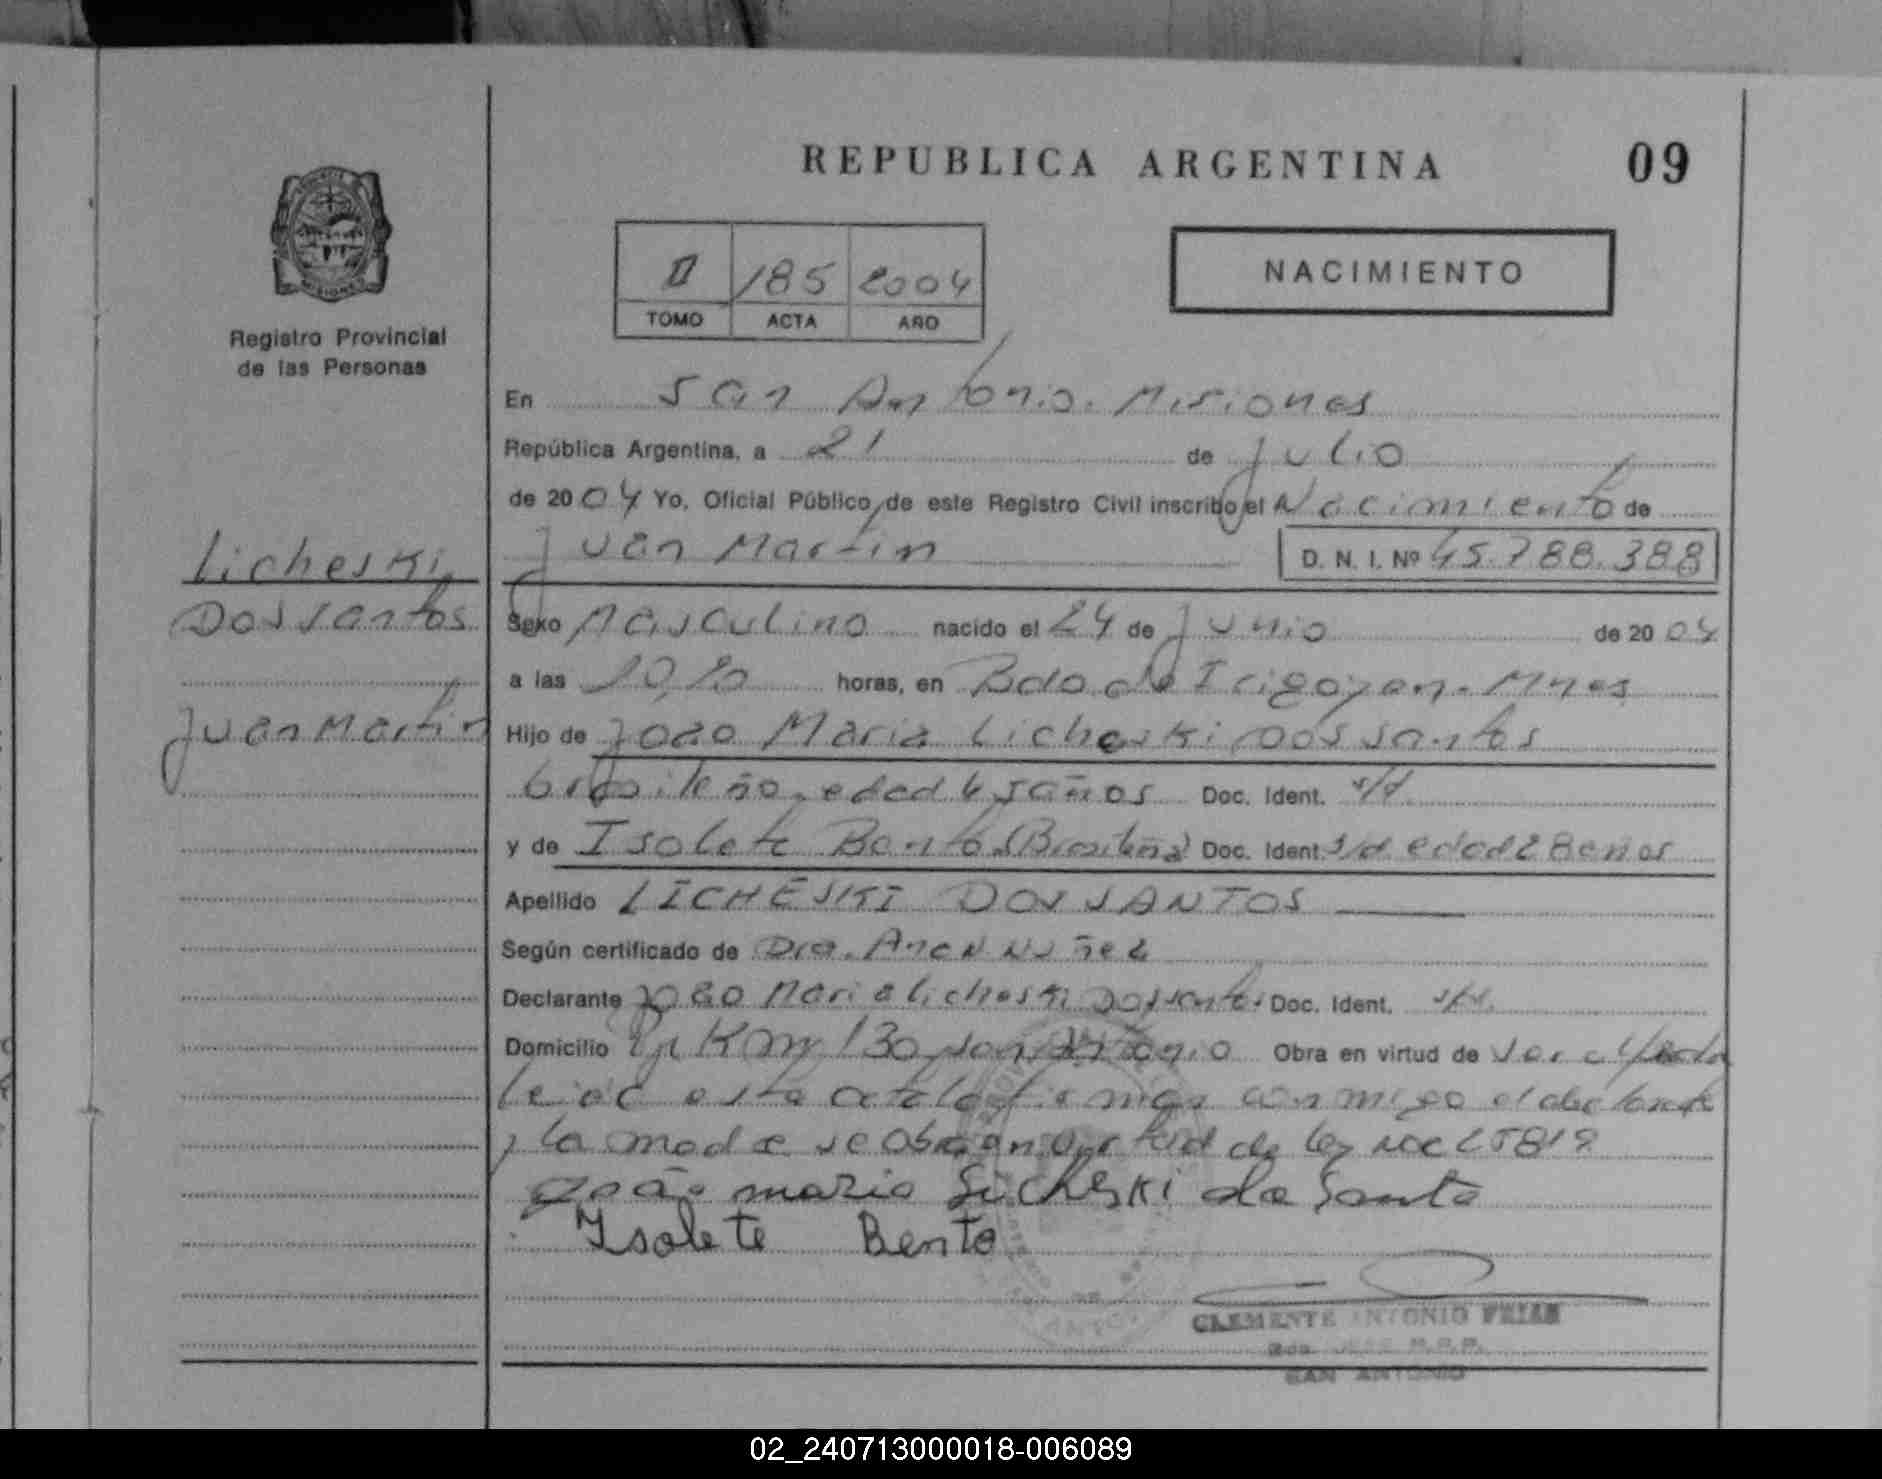 REPUBLICA ARGENTINA 09
II 185 2004
TOMO ACTA AÑO
NACIMIENTO
Registro Provincial
de las Personas
En San Antonio. Misiones
República Argentina, a 21 de Julio
de 2004 Yo, Oficial Público de este Registro Civil inscribo el Nacimiento de
Juan Martin D. N. I. Nº 45.788.388
Licheski
Dos santos
Juan Martin
Sexo Masculino nacido el 24 de Junio de 2004
a las horas, en Bdo de Irigoyen. Mnes
Hijo de Joao Maria Licheski Dos santos
brasileño. edad años Doc. Ident.
y de Isolete Bento (Brasileña) Doc. Ident. s/d edad 28 años
Apellido LICHESKI DOS SANTOS
Según certificado de Dra. Ana N. Nuñez
Declarante Joao Maria licheski Dos santos Doc. Ident.
Domicilio Km 130 san Antonio Obra en virtud de
leida esta acta la firma conmigo el declarante
y la madre se obra en virtud de ley
João maria Licheski do Santo
Isolete Bento
CLEMENTE ANTONIO
SAN ANTONIO
02_240713000018-006089